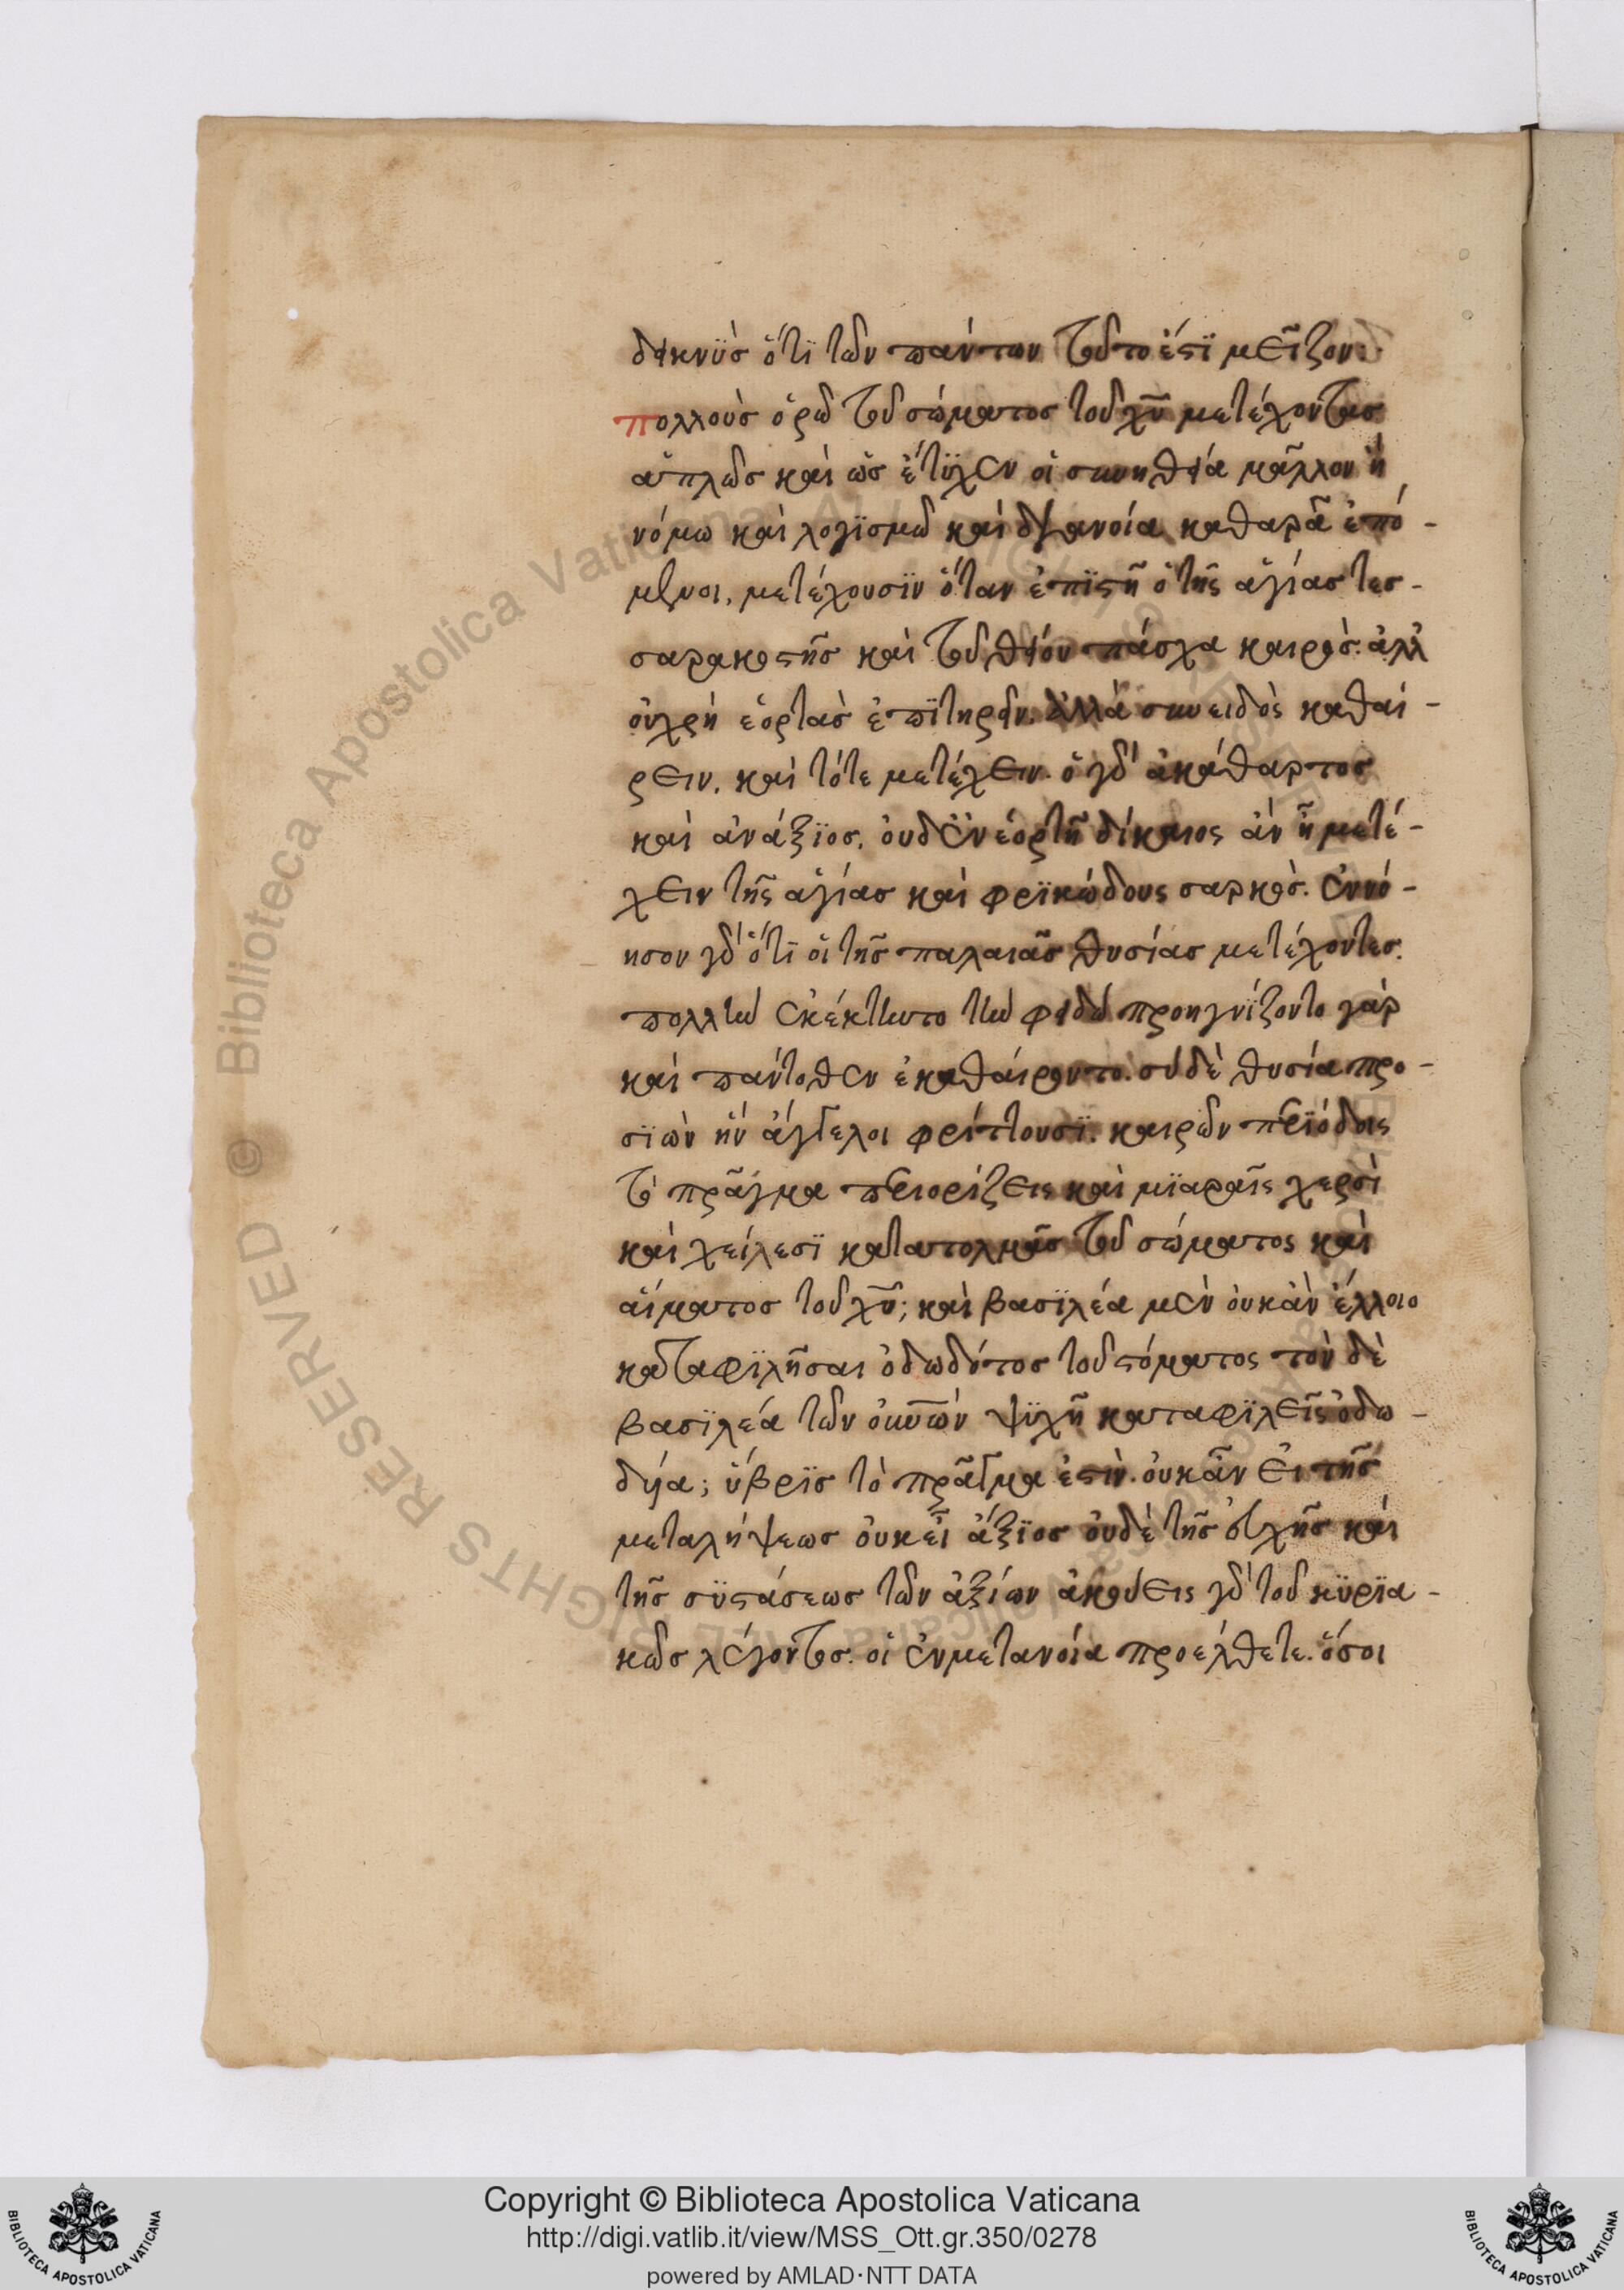 δεικνὺσ ὅτι τῶν πάντων τοῦτο ἐστι μεῖζον:
πολλοὺσ ὁρῶ τοῦ σώματοσ τοῦ χ̅υ̅ μετέχοντασ
ἁπλῶσ καὶ ὡσ ἔτϋχεν οἱ συνηθεία μᾶλλον ἢ
νόμω καὶ λογϊσμῶ καὶ διανοία καθαρᾶ ἑπό-
μενοι, μετέχουσϊν ὅταν ἐπϊστῆ ὁ τῆς ἁγίασ τεσ-
σαρακοστῆσ καὶ τοῦ θείου πάσχα καιρὸσ. ἀλλ
οὐχρὴ ἑορτὰσ ἐπϊτηρεῖν. ἀλλὰ συνειδὸς καθαί-
ρειν. καὶ τότε μετέχειν. ὁ γὰρ ἀκάθαρτοσ
καὶ ἀνάξϊοσ, οὐδ ἐν ἑορτῆ δίκαιος ἂν ἦ μετέ-
χειν τῆς ἁγίασ καὶ φρϊκώδους σαρκὸσ. ἐννό-
ησον γὰρ ὅτι οἱ τῆσ παλαιᾶσ θυσίασ μετέχοντεσ.
πολλὴν ἐκέκτηντο τὴν φειδώ προηγνίζοντο γὰρ
καὶ πάντοθεν ἐκαθαίροντο. σύ δὲ θυσία προ-
σϊὼν ἣν ἄγγελοι φρίττουσϊ. καιρῶν περϊόδοις
τὸ πρᾶγμα περιορίζεις καὶ μϊαραῖς χερσὶ
καὶ χείλεσϊ κατατολμᾶσ τοῦ σώματος καὶ
αἵματοσ τοῦ χ̅υ̅; καὶ βασϊλέα μὲν οὐκ ἂν ἕλλοιο
καταφϊλῆσαι ὀδωδότοσ τοῦ στόματος τὸν δὲ
βασϊλέα τῶν ο̅υ̅ν̅ῶ̅ν̅ ψϋχῆ καταφϊλεῖς ὀδω-
δύα; ὕβρϊσ τὸ πρᾶγμα ἐστὶν. οὐκᾶν εἰ τῆσ
μεταλήψεωσ οὐκ εἶ ἄξϊοσ οὐδὲ τῆσ εὐχῆσ καὶ
τῆσ σϋστάσεωσ τῶν ἀξίων ἀκούεις γὰρ τοῦ κϋρϊα-
κῶσ λέγοντοσ. οἱ ἐν μετανοία προέλθετε. ὅσοι
Copyright © Biblioteca Apostolica Vaticana
http://digi.vatlib.it/view/MSS_Ott.gr.350/0278
powered by AMLAD·NTT DATA